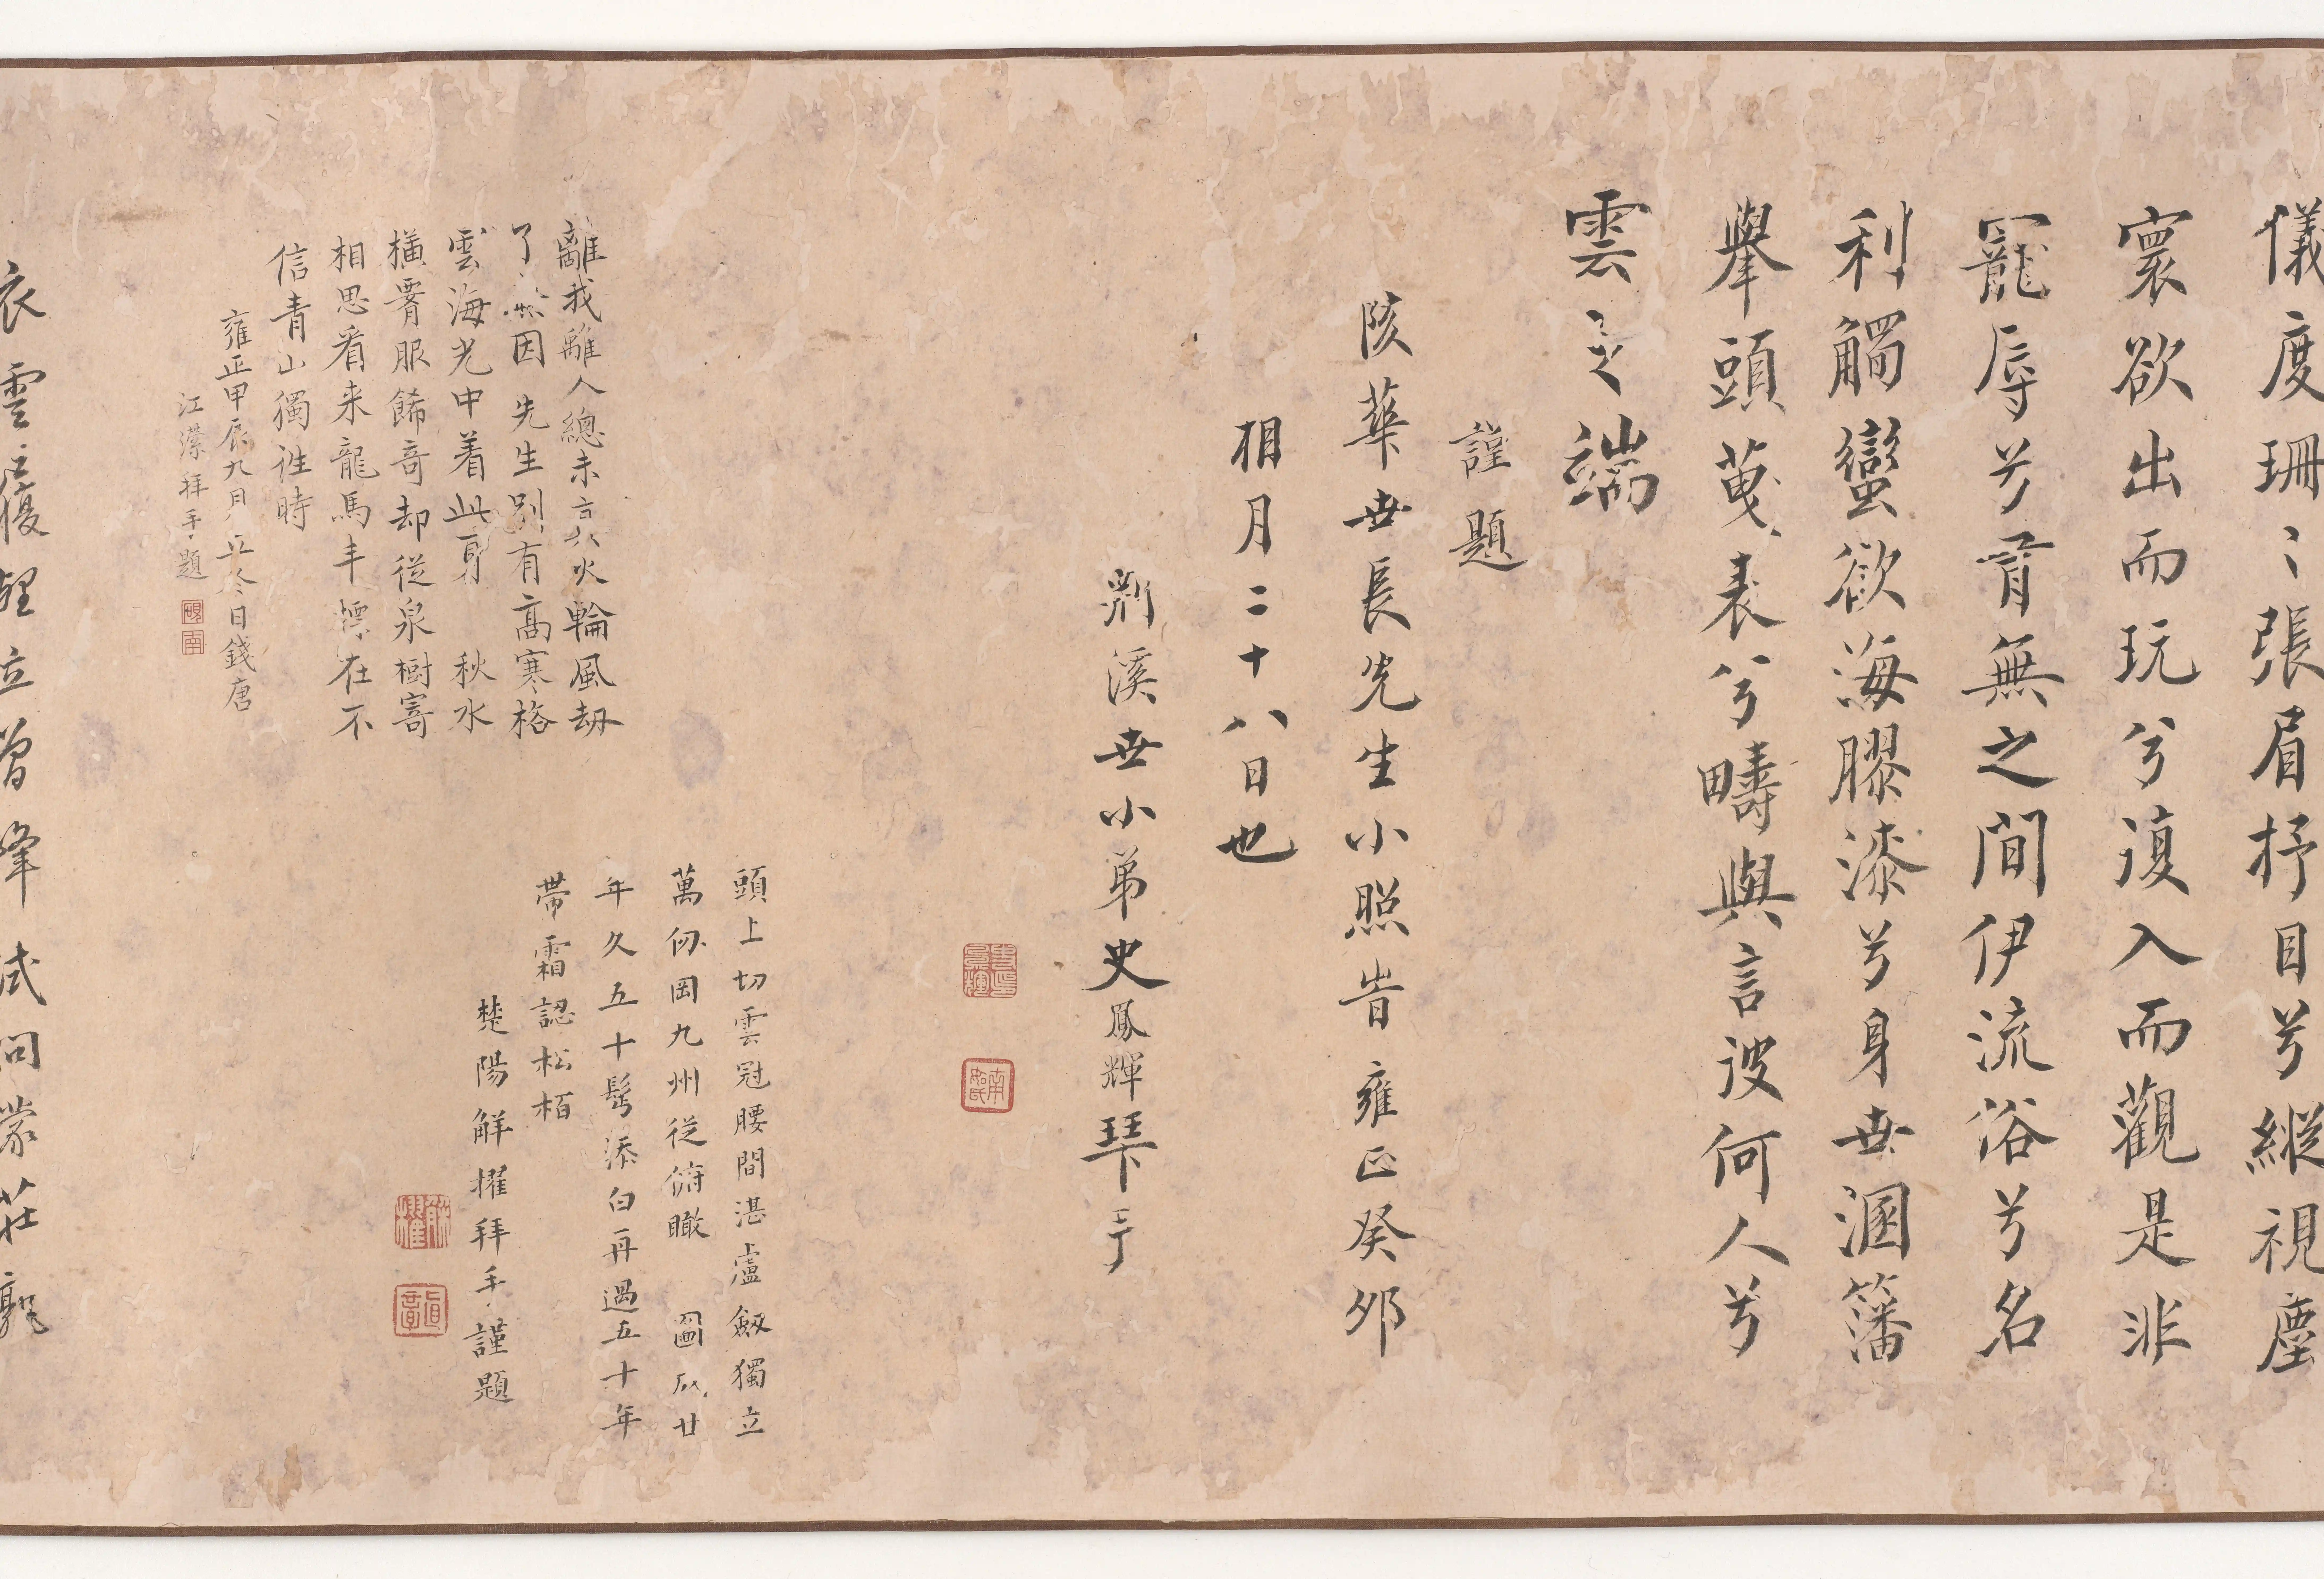 儀度珊〻張眉抒目兮縱視塵
寰欲出而玩兮復入而觀是非
寵辱兮冐無之間伊流俗兮名
利觸蠻欲海膠漆兮身世溷籓
舉頭蔑表兮疇與言彼何人兮
雲之端
謹題
陔華世長先生小照峕雍正癸夘
相月二十八日也
剡溪世小弟史鳳輝琴于
頭上切雲冠腰間湛盧劔獨立
萬仞岡九州從俯瞰 圖成廿
年久五十髩添白再過五十年
帶霜認松栢
楚陽觧擢拜手謹題
離我離人總未言火輪風刼
了然因先生別有髙寒格
雲海光中着此身 秋水
橫胷服餙奇却從泉樹寄
相思看来龍馬丰標在不
信青山獨往時
雍正甲辰九月立冬日錢唐
江濴拜手題
衣雲履
立曽峰試問蒙莊